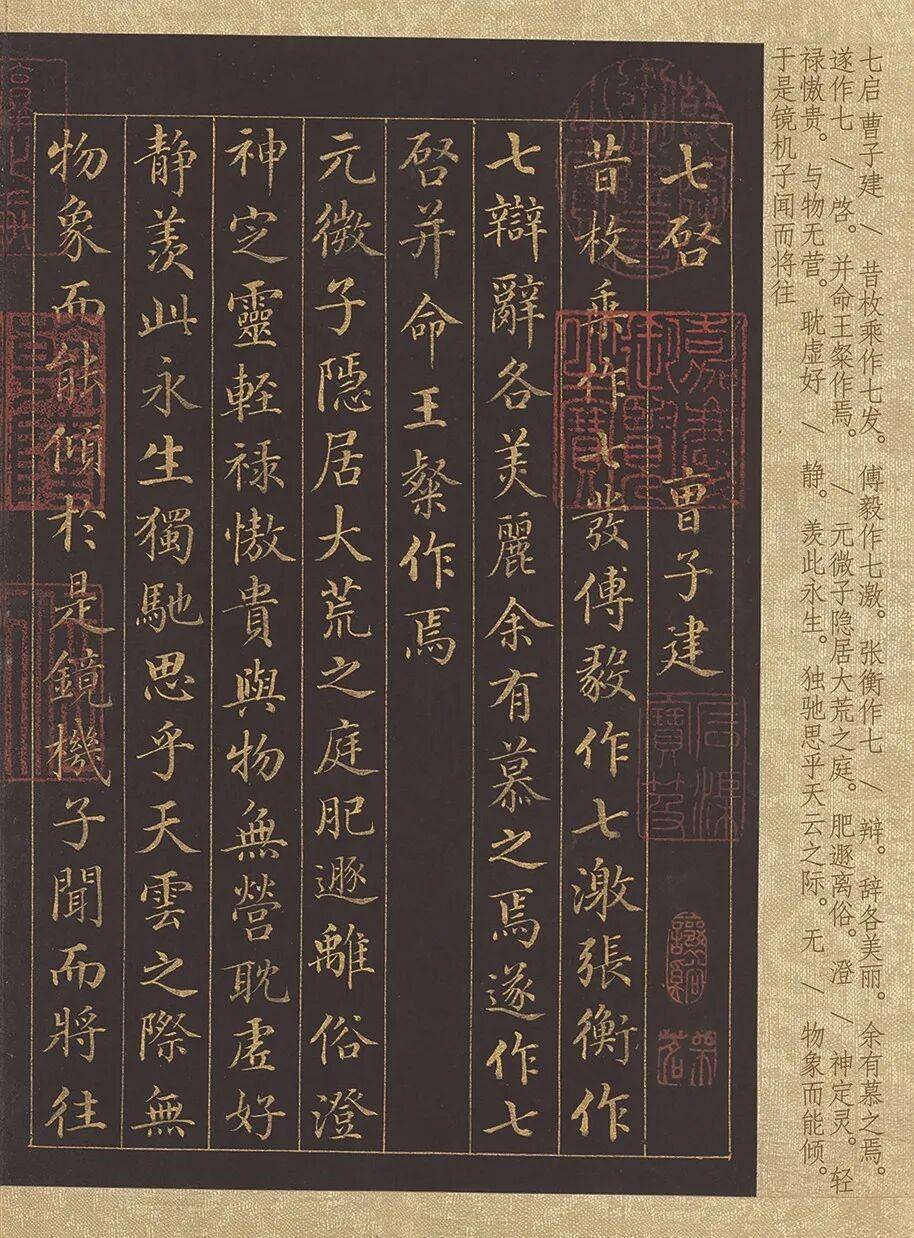 七启 曹子建 / 昔枚乘作七发。傅毅作七激。张衡作七 / 辩。辞各美丽。余有慕之焉。
遂作七 / 啓。并命王粲作焉。 / 元微子隐居大荒之庭。肥遯离俗。澄 / 神定灵。轻
禄慠贵。与物无营。耽虚好 / 静。羡此永生。独驰思乎天云之际。无 / 物象而能倾。
于是镜机子闻而将往
七啓 曹子建
昔枚乘作七發傅毅作七激張衡作
七辯辭各美麗余有慕之焉遂作七
啓并命王粲作焉
元微子隱居大荒之庭肥遯離俗澄
神定靈輕禄慠貴與物無營耽虛好
静羨此永生獨馳思乎天雲之際無
物象而能傾於是鏡機子聞而將往
嘉慶御覽之寶
石渠寶笈